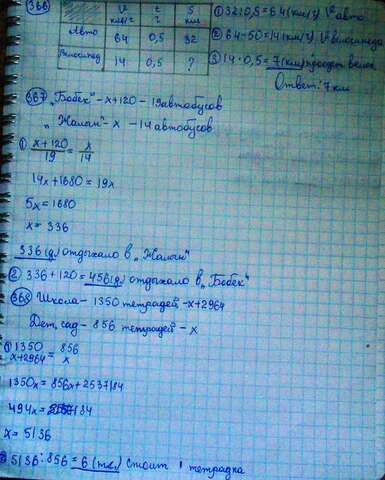 366
V км/ч t ч S км
Авто 64 0,5 32
Велосипед 14 0,5 ?
① 32:0,5=64(км/ч) V авто
② 64-50=14(км/ч) V велосипеда
③ 14·0,5=7(км) проедет велос.
Ответ: 7 км
367 „Бобек" - x+120 - 19 автобусов
„Жалын" - x - 14 автобусов
① x+120/19 = x/14
14x+1680=19x
5x=1680
x=336
336(д) отдыхало в „Жалын"
② 336+120=456(д) отдыхало в „Бобек"
368 Школа - 1350 тетрадей - x+2964
Дет. сад - 856 тетрадей - x
① 1350/x+2964 = 856/x
1350x=856x+2537184
494x=2537184
x=5136
5136:856=6(тг) стоит 1 тетрадка